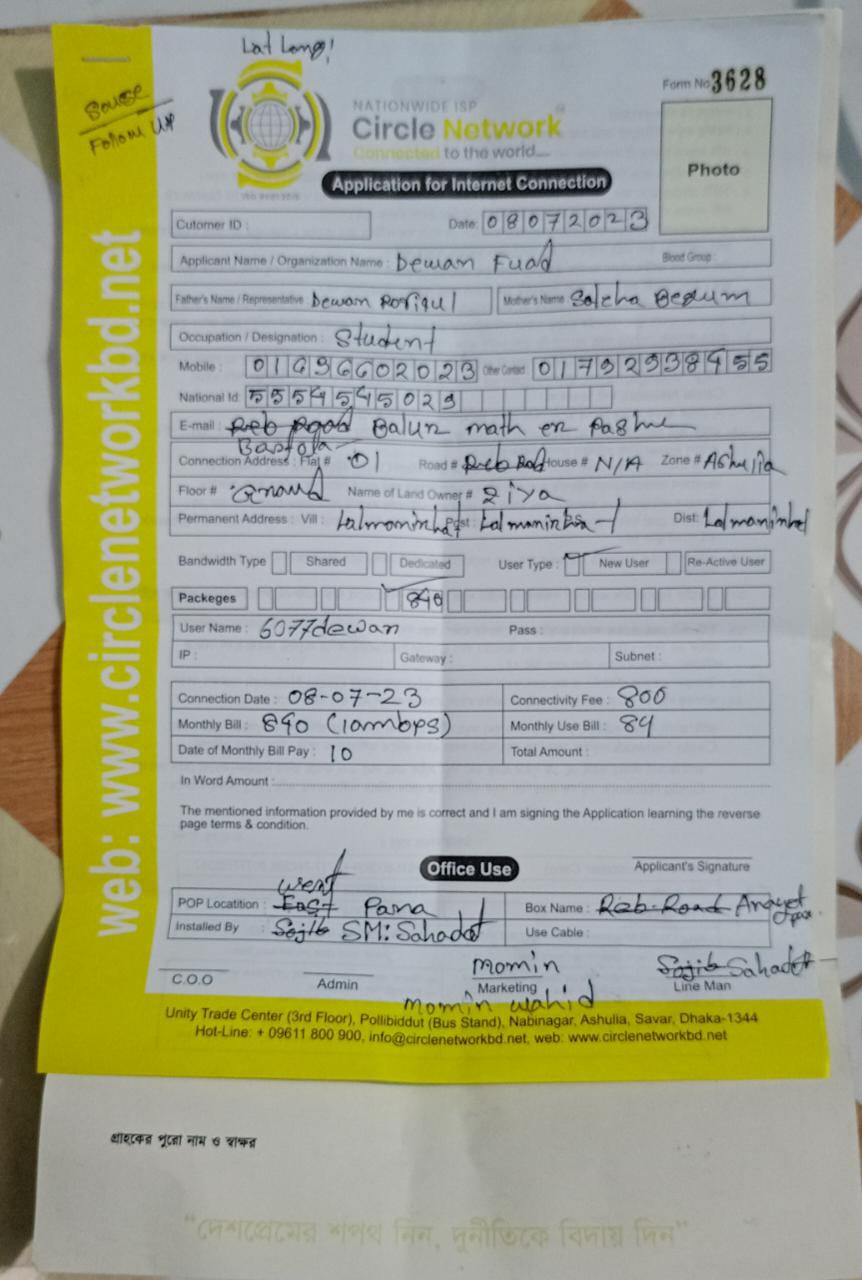 Lat Long!
Souse
Follow Up
Form No 3628
NATIONWIDE ISP
Circle Network
Connected to the world....
Photo
Application for Internet Connection
Cutomer ID :
Date: 08072023
Applicant Name / Organization Name : Dewan Fuad
Blood Group :
Father's Name / Representative Dewan Rofiqul
Mother's Name Saleha Begum
Occupation / Designation : Student
Mobile :
Other Contact
National Id:
E-mail : Balur math er Pashe
Bastola
Connection Address : Flat # 01 Road # House # N/A Zone # Ashulia
Floor # Name of Land Owner # Ziya
Permanent Address : Vill : Post : Dist:
Bandwidth Type Shared Dedicated User Type : New User Re-Active User
Packeges 840
User Name : 6077dewan Pass :
IP : Gateway : Subnet :
Connection Date : 08-07-23 Connectivity Fee : 800
Monthly Bill : 840 (10mbps) Monthly Use Bill : 84
Date of Monthly Bill Pay : 10 Total Amount :
In Word Amount :
The mentioned information provided by me is correct and I am signing the Application learning the reverse
page terms & condition.
Applicant's Signature
Office Use
West
POP Locatition : East Para Box Name : Reb Road
Installed By : Sojib SM: Sahadot Use Cable :
Momin Sojib Sahadot
C.O.O Admin Marketing Line Man
Momin Wahid
Unity Trade Center (3rd Floor), Pollibiddut (Bus Stand), Nabinagar, Ashulia, Savar, Dhaka-1344
Hot-Line: + 09611 800 900, info@circlenetworkbd.net, web: www.circlenetworkbd.net
web: www.circlenetworkbd.net
গ্রাহকের পুরো নাম ও স্বাক্ষর
"দেশপ্রেমের শপথ নিন, দুর্নীতিকে বিদায় দিন"